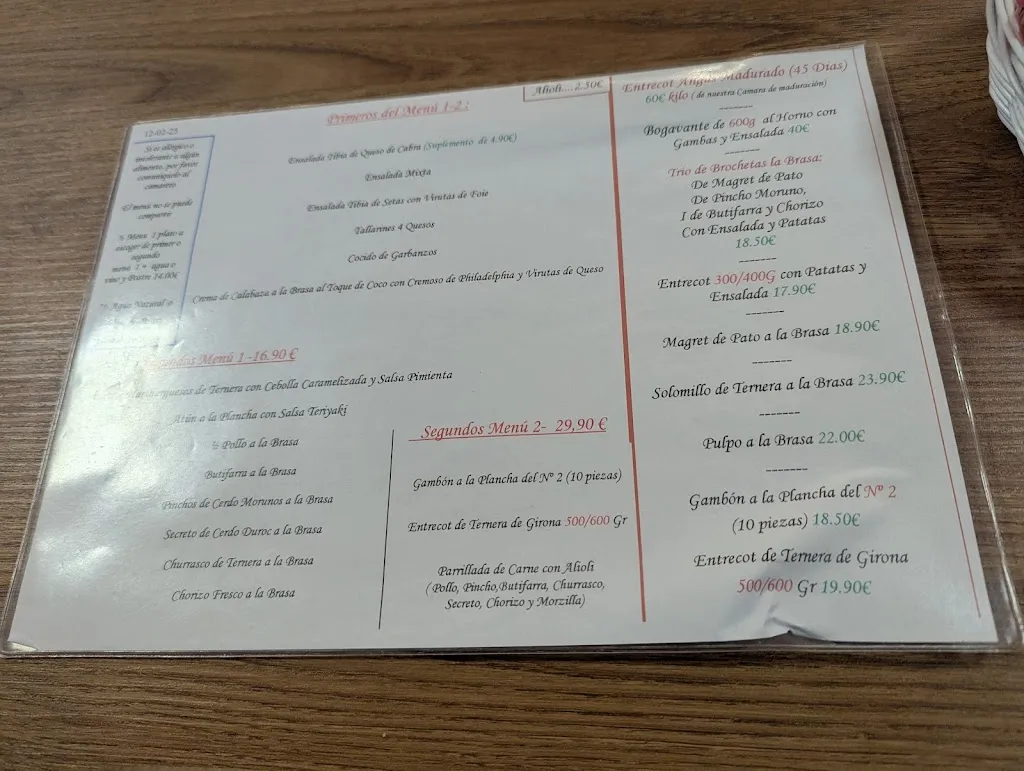 12-02-25
Si es alérgico o
intolerante a algún
alimento, por favor
comuníquelo al
camarero.
El menú no se puede
compartir
½ Menú 1 plato a
escoger de primero o
segundo
menú 1 + agua o
vino y Postre 14.00€
Agua Natural o
Primeros del Menú 1-2:
Ensalada Tibia de Queso de Cabra (Suplemento de 4.90€)
Ensalada Mixta
Ensalada Tibia de Setas con Virutas de Foie
Tallarines 4 Quesos
Cocido de Garbanzos
Crema de Calabaza a la Brasa al Toque de Coco con Cremoso de Philadelphia y Virutas de Queso
Segundos Menú 1 -16.90 €
Hamburguesa de Ternera con Cebolla Caramelizada y Salsa Pimienta
Atún a la Plancha con Salsa Teriyaki
½ Pollo a la Brasa
Butifarra a la Brasa
Pinchos de Cerdo Morunos a la Brasa
Secreto de Cerdo Duroc a la Brasa
Churrasco de Ternera a la Brasa
Chorizo Fresco a la Brasa
Segundos Menú 2- 29,90 €
Gambón a la Plancha del Nº 2 (10 piezas)
Entrecot de Ternera de Girona 500/600 Gr
Parrillada de Carne con Alioli
( Pollo, Pincho,Butifarra, Churrasco,
Secreto, Chorizo y Morzilla)
Alioli....2.50€
Entrecot Angus Madurado (45 Dias)
60€ kilo ( de nuestra Camara de maduración)
-------
Bogavante de 600g al Horno con
Gambas y Ensalada 40€
-------
Trio de Brochetas la Brasa:
De Magret de Pato
De Pincho Moruno,
I de Butifarra y Chorizo
Con Ensalada y Patatas
18.50€
-------
Entrecot 300/400G con Patatas y
Ensalada 17.90€
-------
Magret de Pato a la Brasa 18.90€
-------
Solomillo de Ternera a la Brasa 23.90€
-------
Pulpo a la Brasa 22.00€
-------
Gambón a la Plancha del Nº 2
(10 piezas) 18.50€
Entrecot de Ternera de Girona
500/600 Gr 19.90€